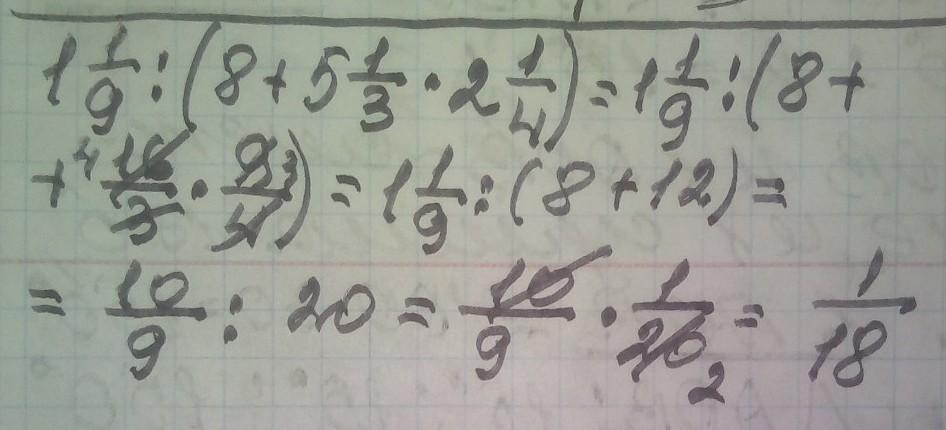 1 1/9 : (8 + 5 1/3 · 2 1/4) = 1 1/9 : (8 +
+ 4 16/3 · 9 3/4) = 1 1/9 : (8 + 12) =
= 10/9 : 20 = 10/9 · 1/20 2 = 1/18